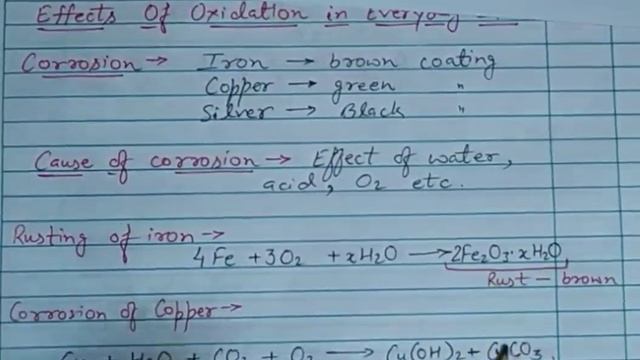 Effects Of Oxidation in Everyday
Corrosion → Iron → brown coating
Copper → green "
Silver → Black "
Cause of corrosion → Effect of water,
acid, O2 etc.
Rusting of iron →
4Fe + 3O2 + xH2O → 2Fe2O3·xH2O,
Rust - brown
Corrosion of Copper →
H2O + CO2 + O2 → Cu(OH)2 + CuCO3.